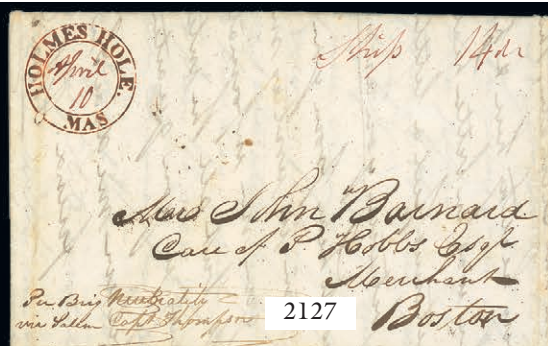 HOLMES HOLE.
April
10
MAS
Ship 14
John Barnard
Care of P. Hobbs Esqr
Merchant
Boston
Per Brig Neutrality
via Salem Capt Thompson
2127